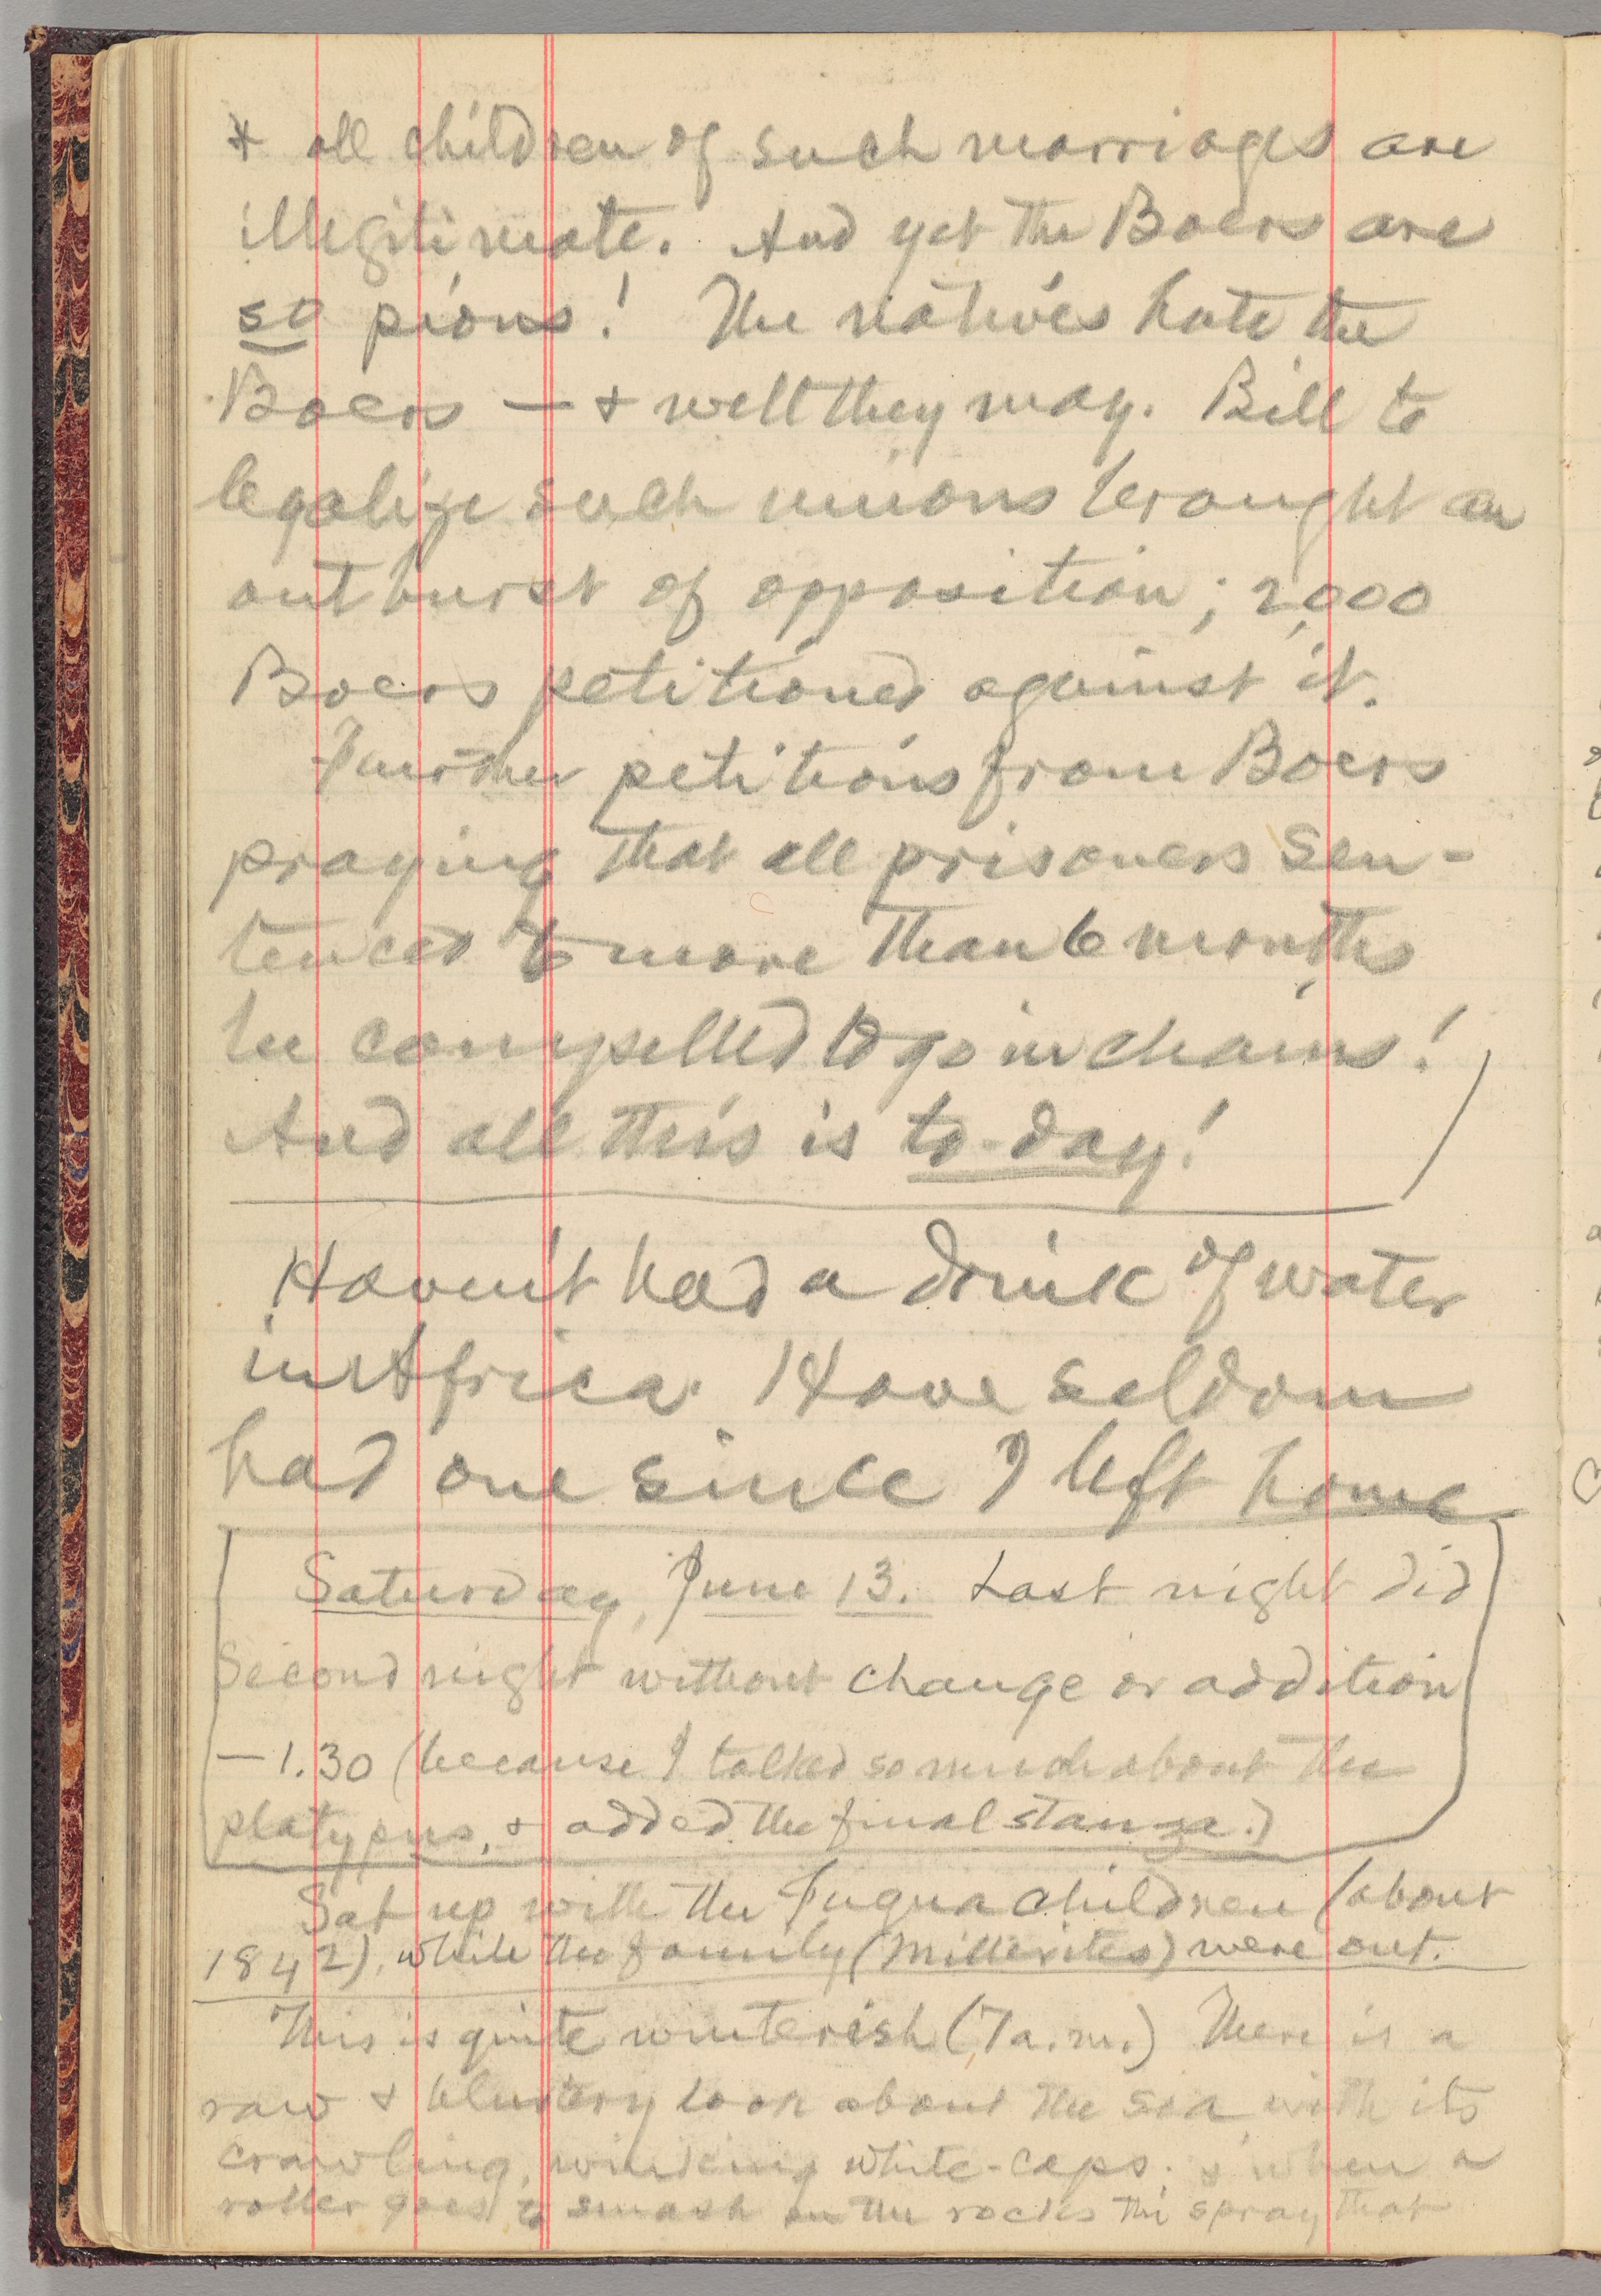 * all children of such marriages are
illegitimate. And yet the Boers are
so pious! The natives hate the
Boers — & well they may. Bill to
legalize such unions brought an
outburst of opposition; 2,000
Boers petitioned against it.
Further petitions from Boers
praying that all prisoners sen-
tenced to more than 6 months
be compelled to go in chains!
And all this is to-day!
Haven't had a drink of water
in Africa. Have seldom
had one since I left home
Saturday, June 13. Last night did
Second night without change or addition
— 1.30 (because I talked so much about the
platypus, & added the final stanza.)
Sat up with the Fuqua children (about
1842), while the family (Millerites) were out.
This is quite winterish (7 a.m.) There is a
raw & blustery look about the sea with its
crawling, winking white-caps; & when a
roller goes to smash on the rocks the spray that